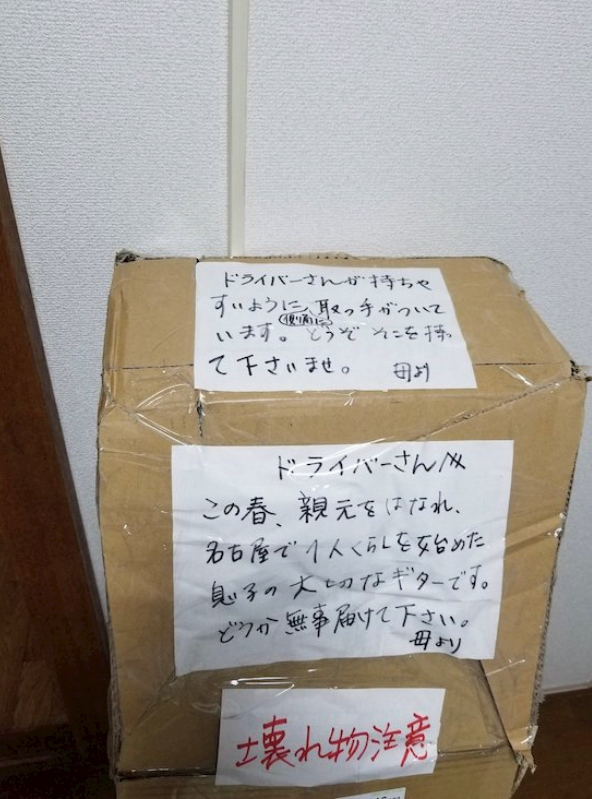 ドライバーさんが持ちや
すいように、取っ手がついて
側面に
います。どうぞそこを持っ
て下さいませ。 母より
ドライバーさんへ
この春、親元をはなれ、
名古屋で1人くらしを始めた
息子の大切なギターです。
どうか無事届けて下さい。
母より
壊れ物注意